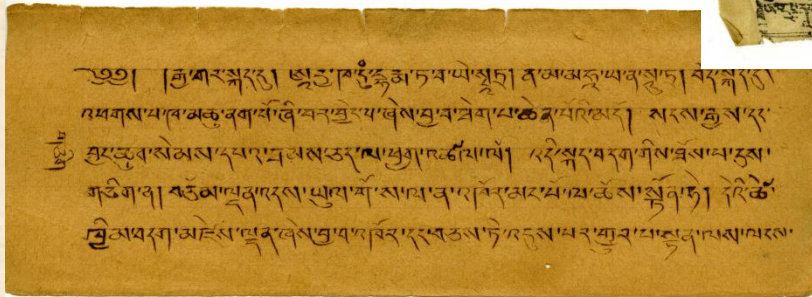 ༄༅། །རྒྱ་གར་སྐད་དུ། ཨཱརྱ་ཁ་དུཾ་ རྣ་མ་ཏ་བ་ཡེ་སཱུཏྲ། ན་མ་མ་ཧཱ་ཡ་ན་སཱུཏྲ། བོད་སྐད་དུ།
འཕགས་པ་ཁ་མཆུ་ནག་པོ་ཞི་བར་བྱེད་པ་ཞེས་བྱ་བ་ཐེག་པ་ཆེན་པོའི་མདོ། སངས་རྒྱས་དང་
བྱང་ཆུབ་སེམས་དཔའ་ཐམས་ཅད་ལ་ཕྱག་འཚལ་ལོ། འདི་སྐད་བདག་གིས་ཐོས་པ་དུས་
གཅིག་ན། བཅོམ་ལྡན་འདས་ཡུལ་གོ་ས་ལ་ན་འཁོར་མང་པོ་ལ་ཆོས་སྟོན་ཏེ། དེའི་ཚེ་
ཁྱིམ་བདག་མཛེས་ལྡན་ཞེས་བྱ་བ་འཁོར་དང་བཅས་ཏེ་འདུས་པར་གྱུར་པ་སྟན་ལས་ལངས་